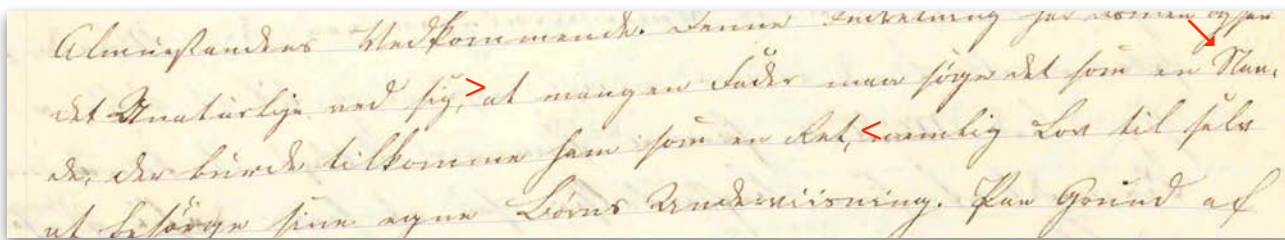 Almuestandens Vedkommende. Denne Indretning har ogsaa
det Unaturlige ved sig, at mangen Fader maa søge det som en Naa-
de, der burde tilkomme ham som en Ret, nemlig Lov til selv
at besørge sine egne Børns Underviisning. Paa Grund af